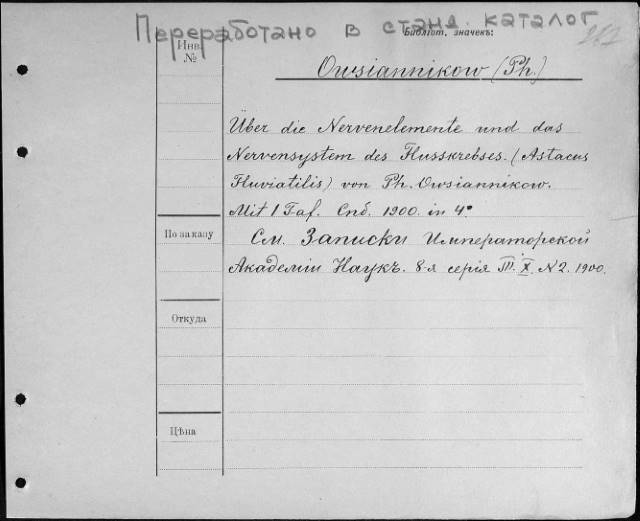 Переработано в станд. каталог
Инв. №
Библіот. значекъ:
Owsiannikow (Ph.)
Über die Nervenelemente und das
Nervensystem des Flusskrebses. (Astacus
Fluviatilis) von Ph. Owsiannikow.
Mit 1 Taf. Спб. 1900. in 4°
По заказу
См. Записки Императорской
Академіи Наукъ. 8-я серія Т. X. N 2. 1900.
Откуда
Цѣна